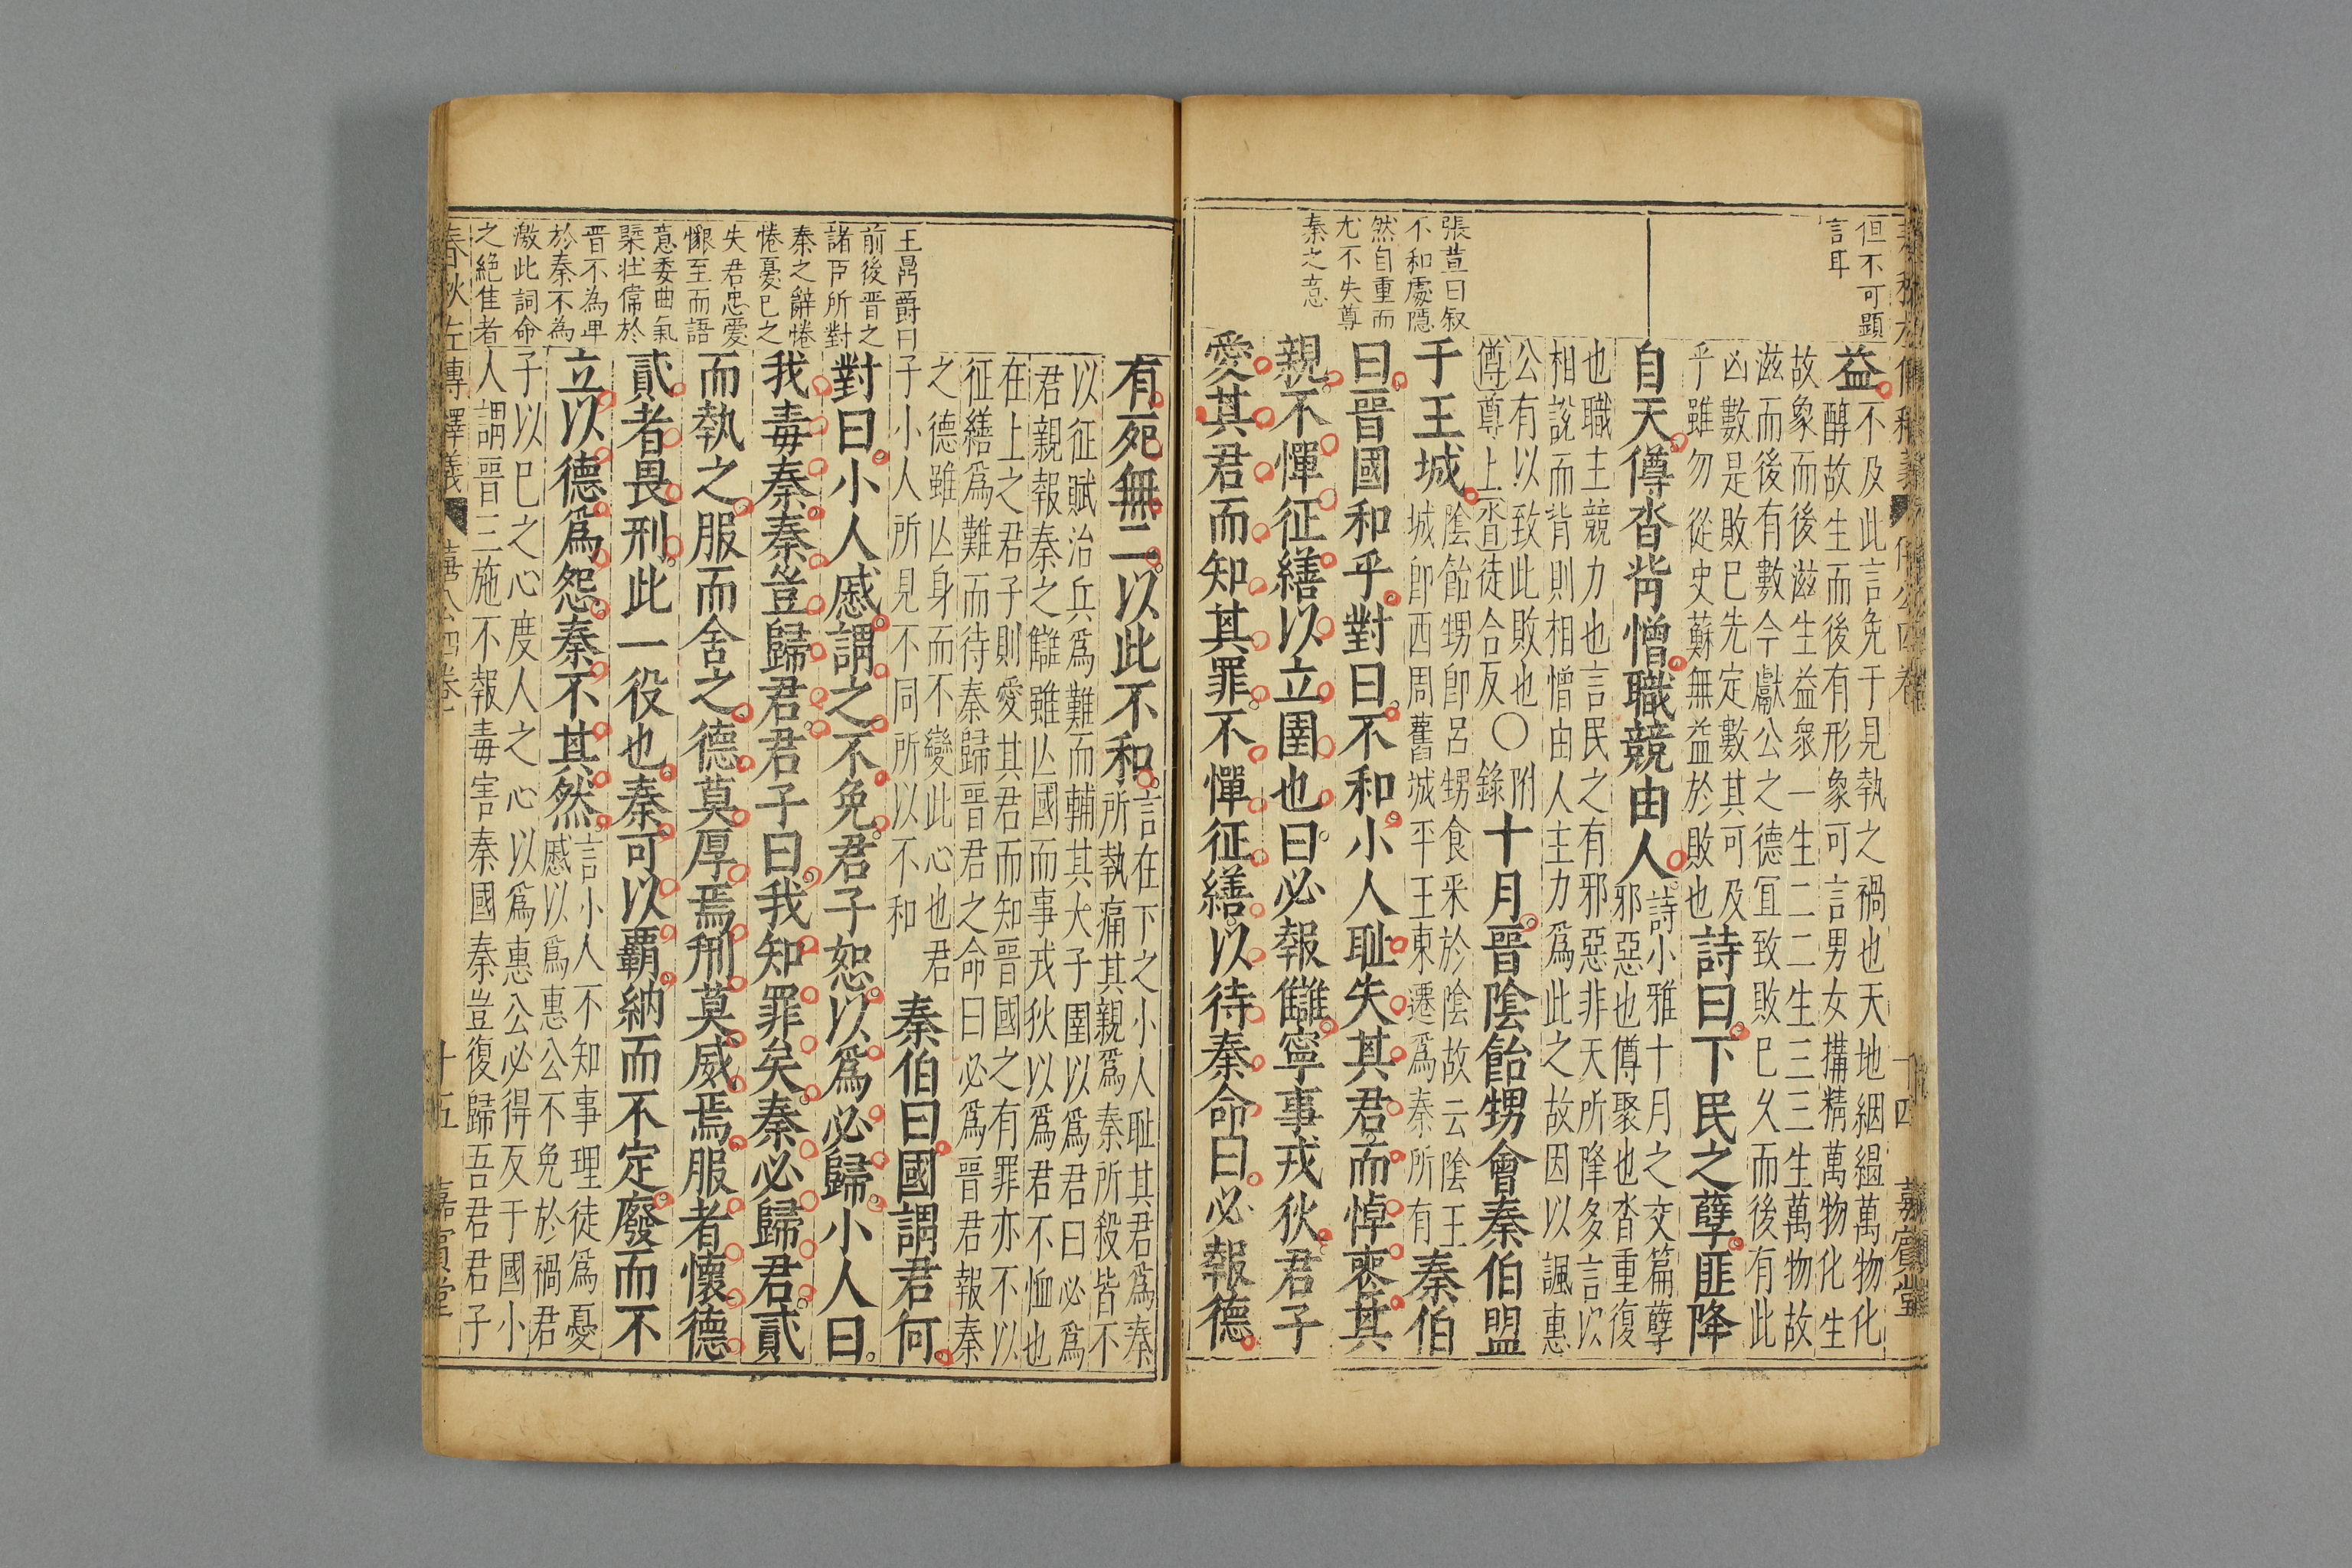 春秋左傳釋義 僖公四卷 十四 嘉賓堂
但不可顕
言耳
張萱曰叙
不和處隱
然自重而
尤不失尊
秦之意
益不及此言免于見執之禍也天地絪縕萬物化
醇故生而後有形象可言男女搆精萬物化生
故象而後滋生益衆一生二二生三三生萬物故
滋而後有數今獻公之德冝致敗巳久而後有此
凶數是敗巳先定數其可及
乎雖勿從史蘇無益於敗也詩曰下民之孽匪降
自天僔沓背憎職競由人詩小雅十月之交篇孽
邪惡也僔聚也沓重復
也職主競力也言民之有邪惡非天所降多言以
相說而背則相憎由人主力爲此之故因以諷惠
公有以致此敗也〇附
僔尊上沓徒合反 錄十月晉陰飴甥會秦伯盟
于王城陰飴甥卽呂甥食采於陰故云陰王
城卽西周舊城平王東遷爲秦所有秦伯
曰晉國和乎對曰不和小人耻失其君而悼喪其
親不憚征繕以立圉也曰必報讎寧事戎狄君子
愛其君而知其罪不憚征繕以待秦命曰必報德
王鼎爵曰
前後晉之
諸臣所對
秦之辭惓
惓憂巳之
失君忠愛
懇至而語
意委曲氣
槩壯偉於
晋不為卑
於秦不為
激此詞命
之絶佳者
有死無二以此不和言在下之小人耻其君爲秦
所執痛其親爲秦所殺皆不
以征賦治兵爲難而輔其大子圉以爲君曰必爲
君親報秦之讎雖亾國而事戎狄以爲君不恤也
在上之君子則愛其君而知晉國之有罪亦不以
征繕爲難而待秦歸晉君之命曰必爲晉君報秦
之德雖亾身而不變此心也君
子小人所見不同所以不和秦伯曰國謂君何
對曰小人慼謂之不免君子恕以爲必歸小人曰
我毒秦秦豈歸君君子曰我知罪矣秦必歸君貳
而執之服而舍之德莫厚焉刑莫威焉服者懷德
貳者畏刑此一役也秦可以覇納而不定廢而不
立以德爲怨秦不其然言小人不知事理徒爲憂
慼以爲惠公不免於禍君
子以巳之心度人之心以爲惠公必得反于國小
人謂晉三施不報毒害秦國秦豈復歸吾君君子
春秋左傳釋義 僖公四卷 十五 嘉賓堂